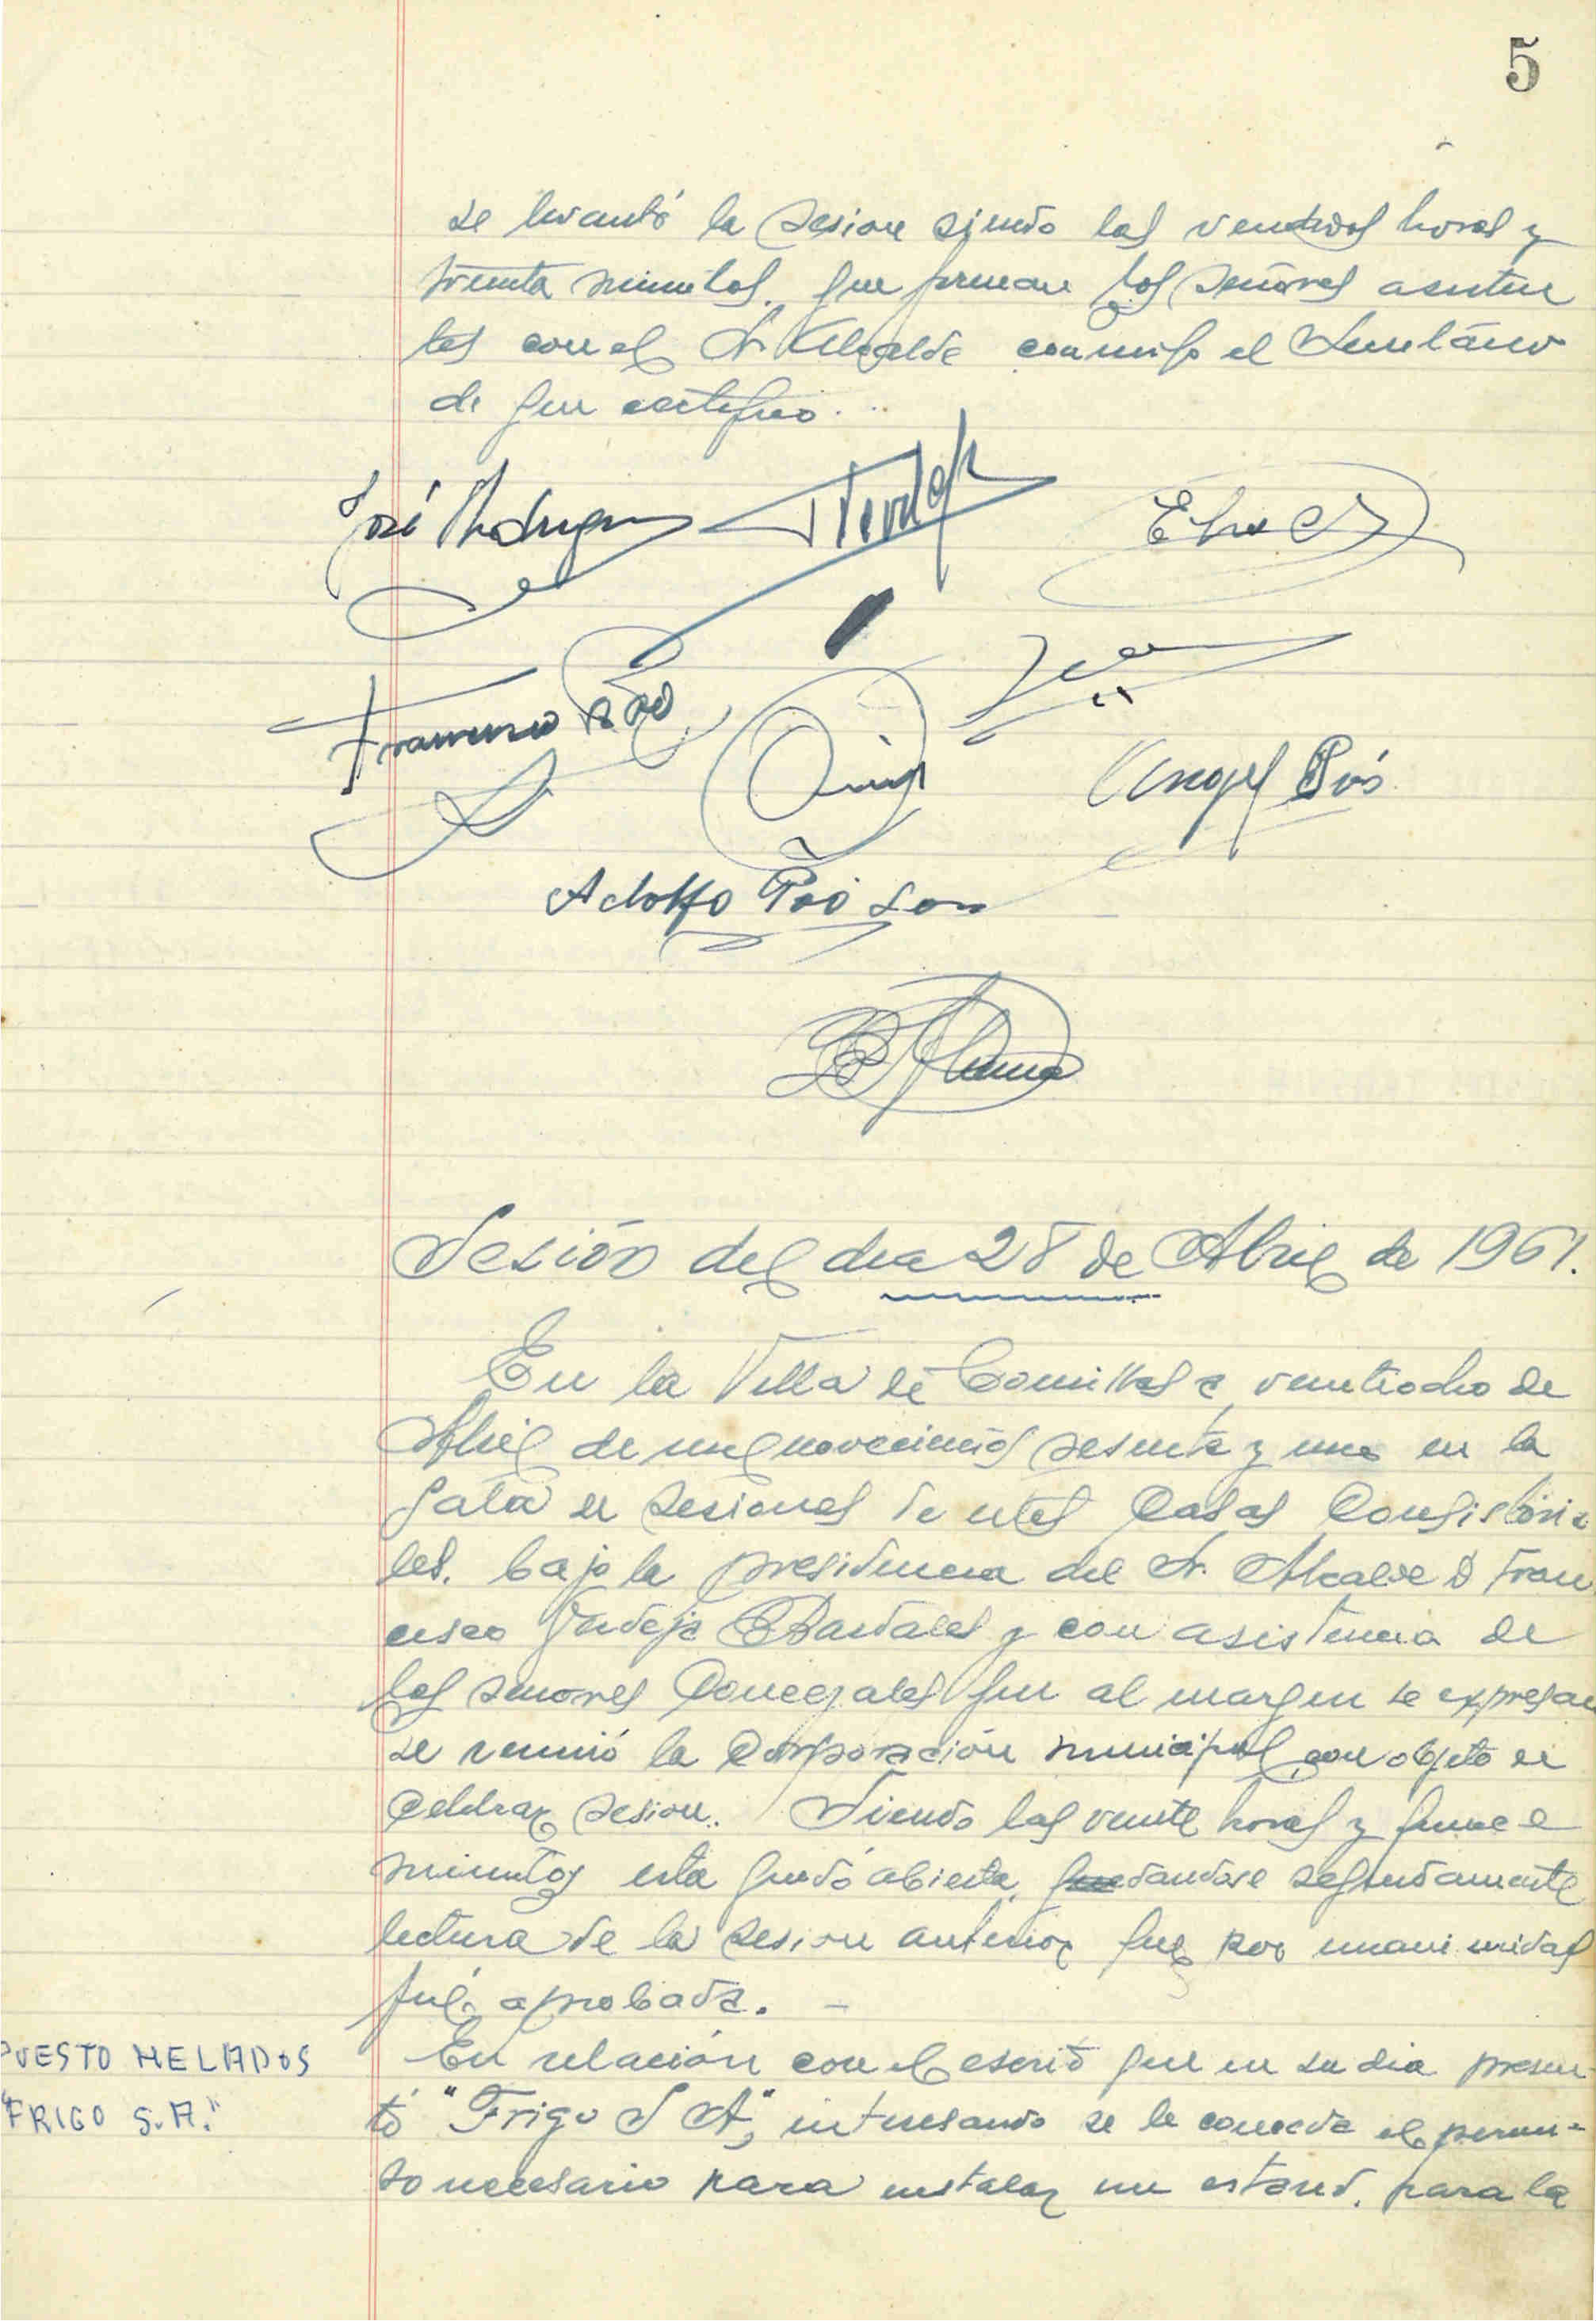 5
se levantó la sesion siendo las ventidos horas y
treinta minutos, que firman los señores asisten
tes con el Sr Alcalde conmigo el Secretario
de que certifico...
José Rodriguez
Francisco
Angel Poó
Adolfo Poó
Sesión del dia 28 de Abril de 1961.
En la Villa de Comillas a veintiocho de
Abril de mil novecientos sesenta y uno en la
Sala de sesiones de estas Casas Consistoria
les, bajo la presidencia del Sr. Alcalde D Fran
cisco Verdeja Bardales y con asistencia de
los señores Concejales que al margen se expresan
se reunió la Corporación municipal con objeto de
Celebrar sesion. Siendo las veinte horas y quince
minutos esta quedó abierta, dandose seguidamente
lectura de la sesion anterior que por unanimidad
fué aprobada. -
PUESTO HELADOS
"FRIGO S.A."
En relación con el escrito que en su dia presen
tó "Frigo S A", interesando se le conceda el permi-
so necesario para instalar un estand, para la